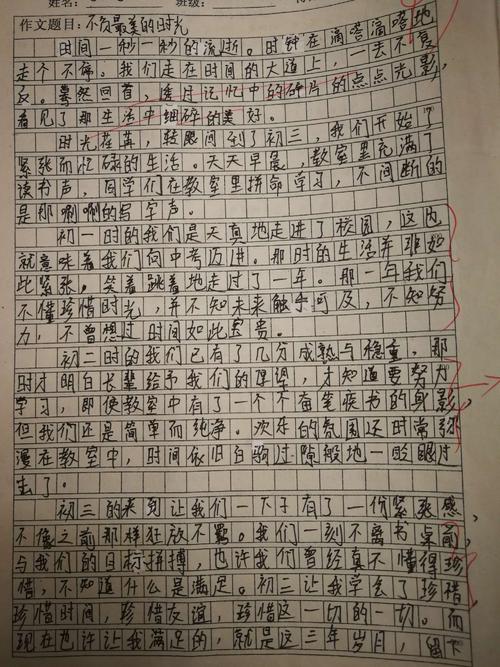 姓名: 班级:
作文题目: 不负最美的时光
时间一秒一秒的流逝。时钟在滴答滴嗒地
走个不停。我们走在时间的大道上,一去不复
反。蓦然回首,透过记忆中的碎片的点点光影,
看见了那生活中细碎的美好。
时光荏苒,转眼间到了初三,我们开始了
紧张而忙碌的生活。天天早晨,教室里充满了
读书声,同学们在教室里拼命学习,不间断的
是那唰唰的写字声。
初一时的我们是天真地走进了校园,这也
就意味着我们向中考迈进。那时的生活并非如
此紧张,笑着跳着地走过了一年。那一年我们
不懂珍惜时光,并不知未来触手可及,不知努
力,不曾想过时间如此宝贵。
初二时的我们已有了几分成熟与稳重,那
时才明白长辈给予我们的厚望,才知道要努力
学习,即使教室中有了一个个奋笔疾书的身影,
但我们还是简单而纯净。欢乐的氛围还时常弥
漫在教室中,时间依旧白驹过隙般地一眨眼过
去了。
初三的来到让我们一下子有了一份紧张感,
不像之前那样狂放不羁。我们一刻不离书桌前,
与我们的目标拼搏,也许我们曾经真不懂得珍
惜,不知道什么是满足。初三让我学会了珍惜
珍惜时间,珍惜友谊,珍惜这一切的一切。而
现在也许让我满足的,就是这三年岁月,留下